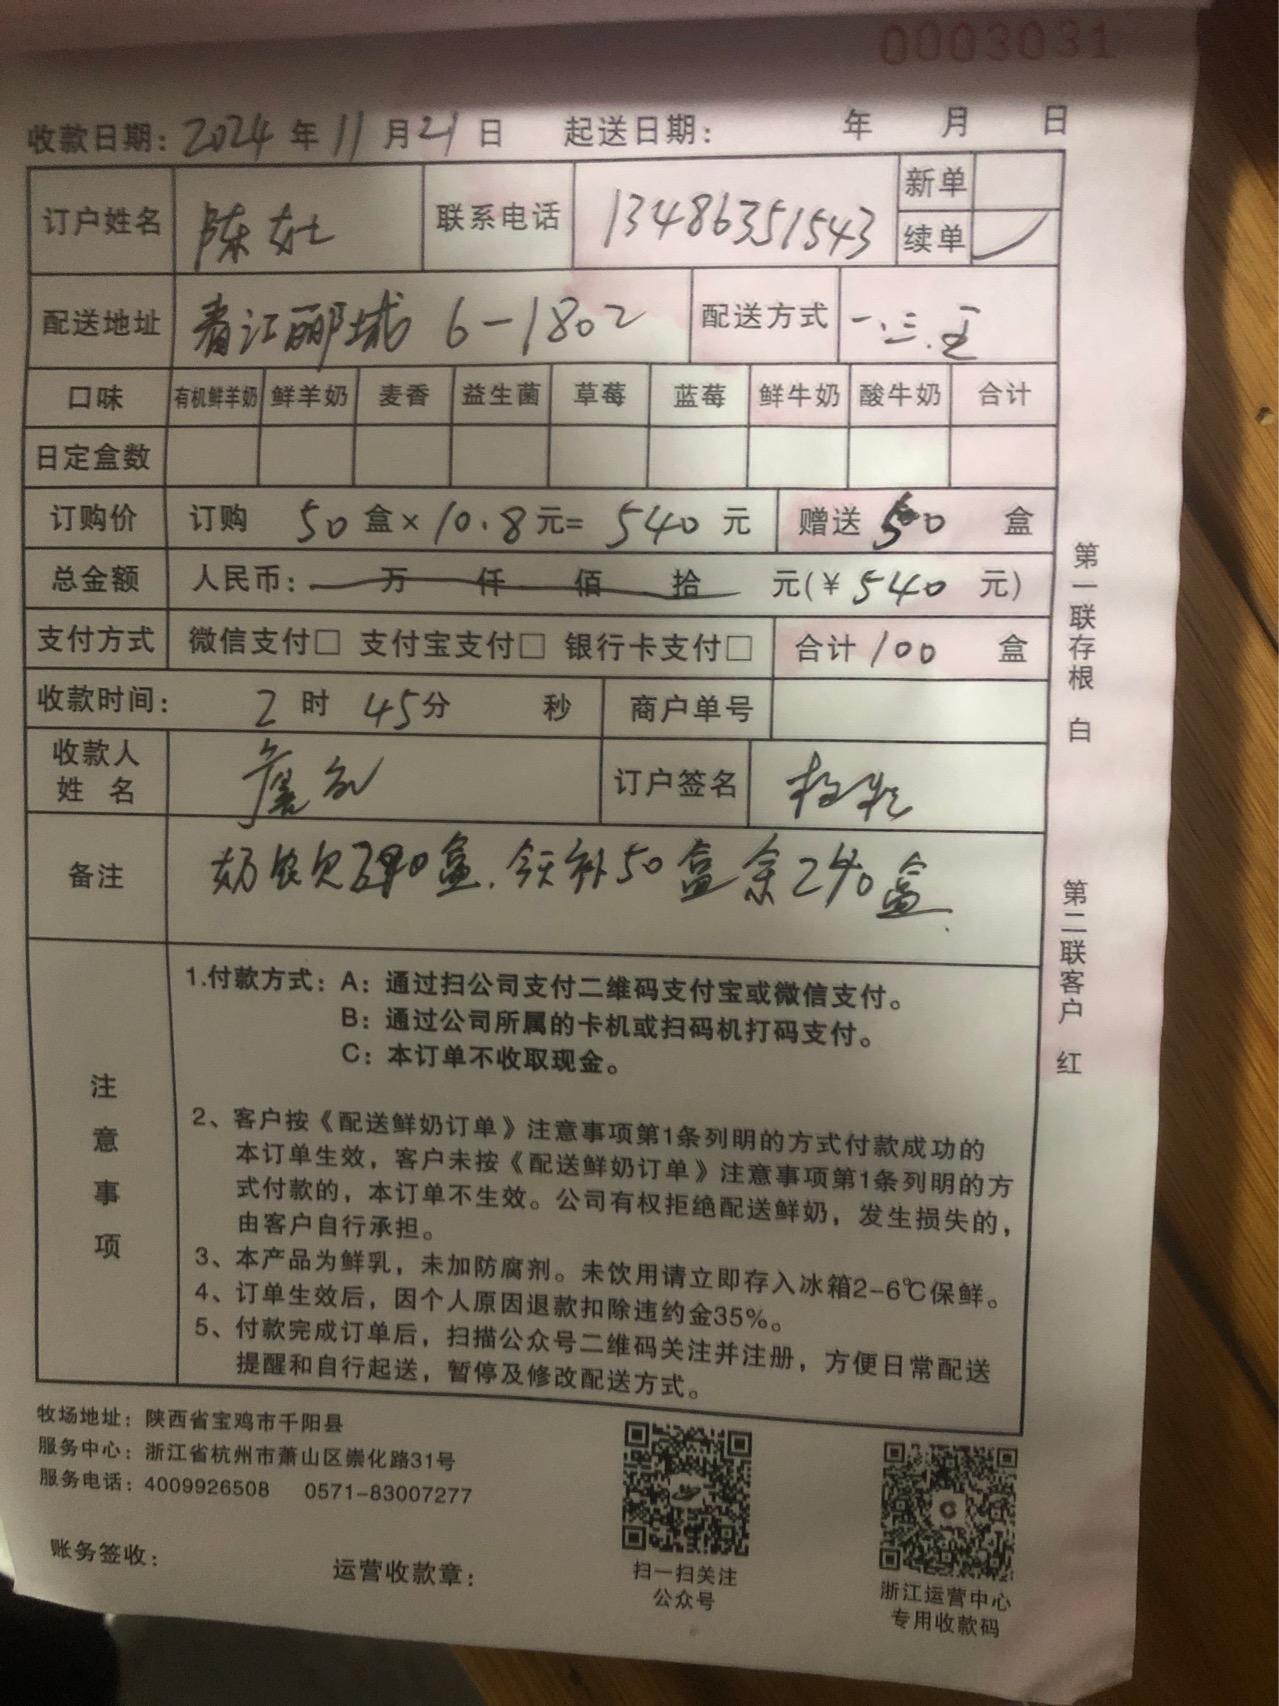 0003031
收款日期：2024年11月21日 起送日期： 年 月 日
订户姓名 陈女士 联系电话 13486351543 新单
续单
配送地址 春江郦城 6-1802 配送方式 一.三.五
口味 有机鲜羊奶 鲜羊奶 麦香 益生菌 草莓 蓝莓 鲜牛奶 酸牛奶 合计
日定盒数
订购价 订购 50 盒×10.8元=540元 赠送 50 盒
总金额 人民币： 万 仟 佰 拾 元(¥540元)
支付方式 微信支付□ 支付宝支付□ 银行卡支付□ 合计100 盒
收款时间： 2时 45分 秒 商户单号
收款人
姓 名
订户签名
备注 盒.今天补50盒余240盒.
注意事项
1.付款方式：A：通过扫公司支付二维码支付宝或微信支付。
B：通过公司所属的卡机或扫码机打码支付。
C：本订单不收取现金。
2、客户按《配送鲜奶订单》注意事项第1条列明的方式付款成功的
本订单生效，客户未按《配送鲜奶订单》注意事项第1条列明的方
式付款的，本订单不生效。公司有权拒绝配送鲜奶，发生损失的，
由客户自行承担。
3、本产品为鲜乳，未加防腐剂。未饮用请立即存入冰箱2-6℃保鲜。
4、订单生效后，因个人原因退款扣除违约金35%。
5、付款完成订单后，扫描公众号二维码关注并注册，方便日常配送
提醒和自行起送，暂停及修改配送方式。
第一联存根 白
第二联客户 红
牧场地址：陕西省宝鸡市千阳县
服务中心：浙江省杭州市萧山区崇化路31号
服务电话：4009926508 0571-83007277
账务签收： 运营收款章：
扫一扫关注
公众号
浙江运营中心
专用收款码